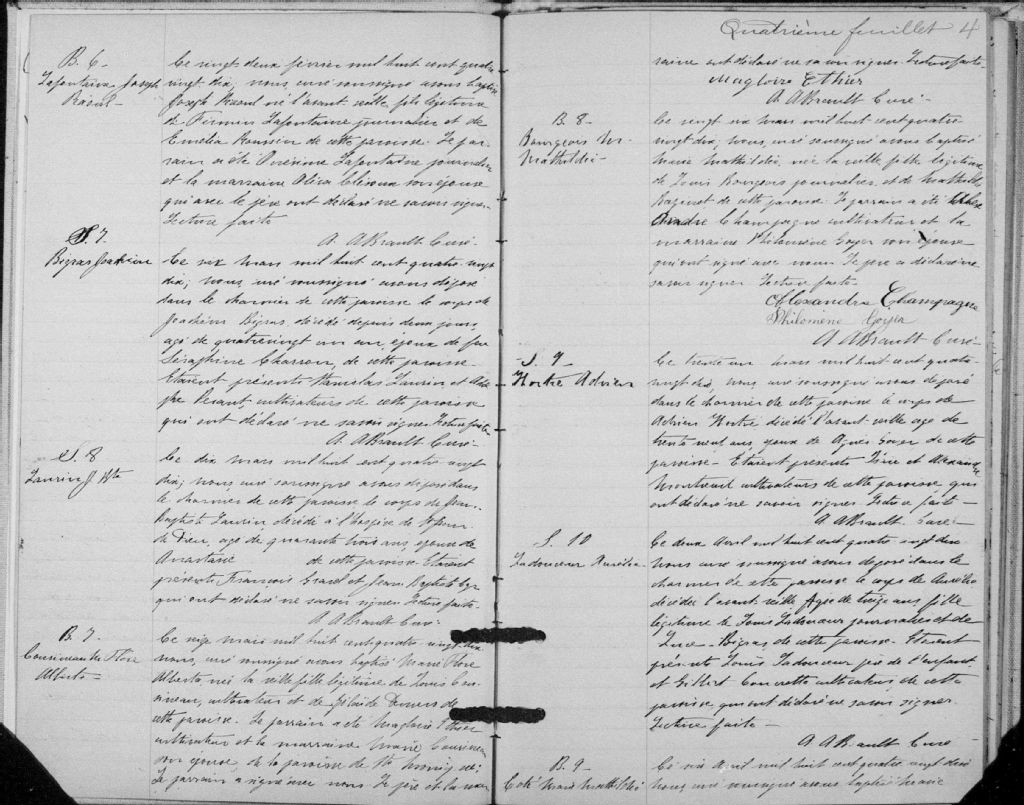 B. 6 -
Lafontaine Joseph
Raoul -
Ce vingt deux fevrier mil huit cent quatre
vingt dix, nous, curé soussigné avons baptisé
Joseph Raoul né l'avant veille fils légitime
de Firmin Lafontaine journalier et de
de cette paroisse. Le par-
rain a été Onésime Lafontaine journalier
et la marraine son épouse
qui avec le père ont déclaré ne savoir signer
Lecture faite
A. A Brault Curé -
S. 7.
Bigras Joachim
Ce six Mars mil huit cent quatre vingt
dix, Nous, curé soussigné avons déposé
dans le charnier de cette paroisse le corps de
Joachim Bigras, décédé depuis deux jours,
agé de quatrevingt un an, époux de feu
Séraphine Charron, de cette paroisse -
Etaient présents Stanislas Laurin et
cultivateurs de cette paroisse
qui ont déclaré ne savoir signer Lecture faite
A. A Brault Curé -
S. 8
Laurin J. Bte
Ce dix mars mil huit cent quatre vingt
dix, nous curé soussigné avons déposé dans
le charnier de cette paroisse le corps de Jean
Baptiste Laurin décédé à l'hospice de St Jean
de Dieu, agé de quarante trois ans, époux de
Anastasie de cette paroisse Etaient
présents François Gravel et Jean Baptiste
qui ont déclaré ne savoir signer Lecture faite -
A. A Brault Curé -
B. 7.
Cousineau M. Flore
Alberta -
Ce mars mil huit cent quatre vingt dix
nous, curé soussigné avons baptisé Marie Flore
Alberta née la veille fille légitime de Louis Cou-
sineau, cultivateur et de
cette paroisse. Le parrain a été Magloire Ethier
cultivateur et la marraine Marie Cousineau
son épouse, de la paroisse de
Le parrain a signé avec nous Le père et la mar
Quatrième feuillet 4
raine ont déclaré ne savoir signer Lecture faite -
Magloire Ethier
A. A Brault Curé -
B. 8 -
Bourgeois M.
Mathilde -
Ce vingt six Mars mil huit cent quatre
vingt dix, Nous, curé soussigné avons baptisé
Marie Mathilde, née la veille fille légitime
de Louis Bourgeois journalier, et de Mathilde
de cette paroisse. Le parrain a été
Champagne cultivateur et la
marraine Philomène Goyer son épouse
qui ont signé avec nous Le père a déclaré ne
savoir signer Lecture faite -
Alexandre Champagne
Philomène Goyer
A. A Brault Curé -
- S. 9 -
Hortre Adrien
Ce trente un Mars mil huit cent quatre
vingt dix, Nous, curé soussigné avons déposé
dans le charnier de cette paroisse le corps de
Adrien Hortre décédé l'avant veille agé de
trente neuf ans, époux de Agnès Goyer de cette
paroisse - Etaient présents et Alexandre
Montreuil cultivateurs de cette paroisse qui
ont déclaré ne savoir signer Lecture faite -
A. A Brault Curé -
S. 10
Ladouceur Aurélie -
Ce deux Avril mil huit cent quatre vingt dix
Nous curé soussigné avons déposé dans le
charnier de cette paroisse le corps de Aurélie
décédée l'avant veille agée de treize ans fille
légitime de Louis Ladouceur journalier et de
Luce Bigras, de cette paroisse - Etaient
présents Louis Ladouceur père de l'enfant
et Gilbert cultivateur de cette
paroisse, qui ont déclaré ne savoir signer
Lecture faite -
A. A Brault Curé -
B. 9 -
Coté Marie Mathilde
Ce six Avril mil huit cent quatre vingt dix
Nous, curé soussigné avons baptisé Marie